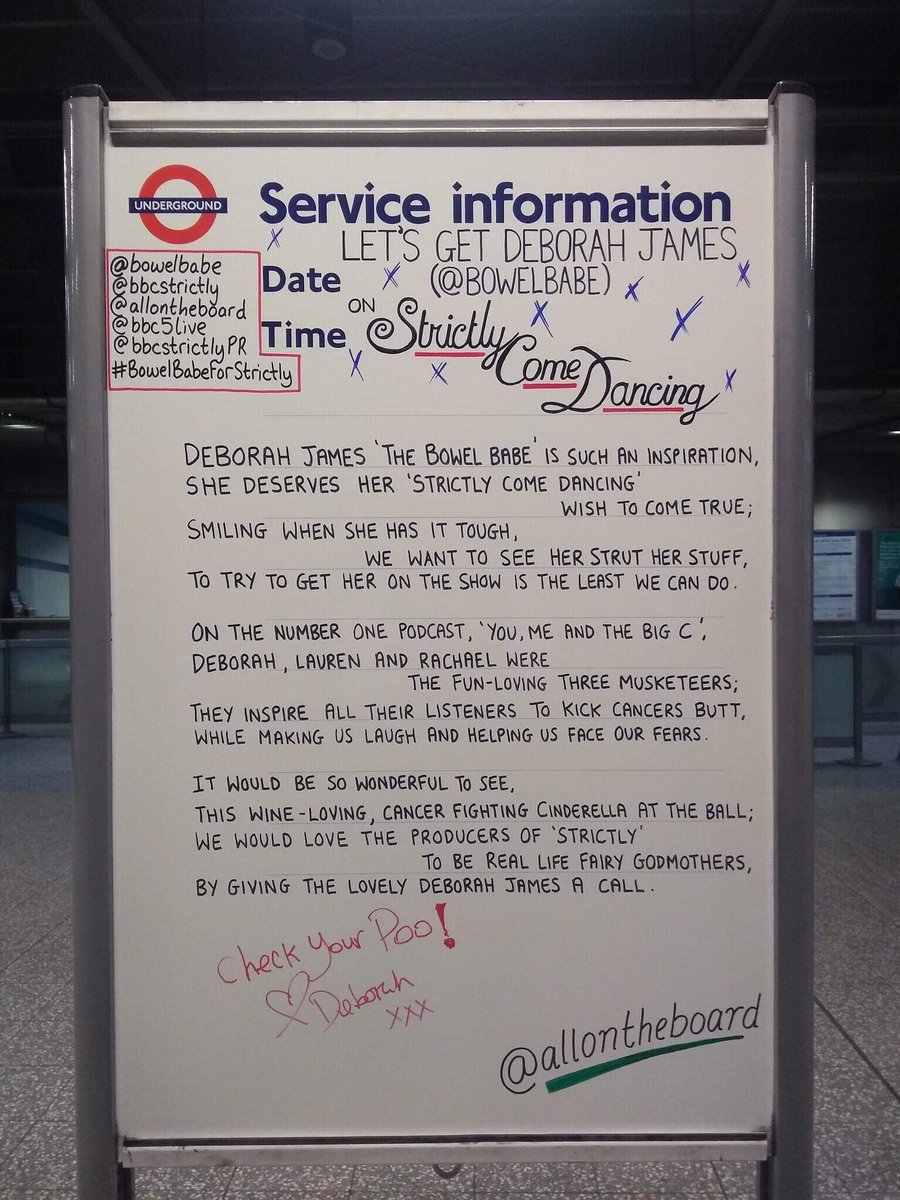 UNDERGROUND
Service information
LET'S GET DEBORAH JAMES
Date (@BOWELBABE)
Time ON Strictly
Come
Dancing
@bowelbabe
@bbcstrictly
@allontheboard
@bbc5live
@bbcstrictlyPR
#BowelBabeForStrictly
DEBORAH JAMES 'THE BOWEL BABE' IS SUCH AN INSPIRATION,
SHE DESERVES HER 'STRICTLY COME DANCING'
WISH TO COME TRUE;
SMILING WHEN SHE HAS IT TOUGH,
WE WANT TO SEE HER STRUT HER STUFF,
TO TRY TO GET HER ON THE SHOW IS THE LEAST WE CAN DO.
ON THE NUMBER ONE PODCAST, 'YOU, ME AND THE BIG C',
DEBORAH, LAUREN AND RACHAEL WERE
THE FUN-LOVING THREE MUSKETEERS;
THEY INSPIRE ALL THEIR LISTENERS TO KICK CANCERS BUTT,
WHILE MAKING US LAUGH AND HELPING US FACE OUR FEARS.
IT WOULD BE SO WONDERFUL TO SEE,
THIS WINE-LOVING, CANCER FIGHTING CINDERELLA AT THE BALL;
WE WOULD LOVE THE PRODUCERS OF 'STRICTLY'
TO BE REAL LIFE FAIRY GODMOTHERS,
BY GIVING THE LOVELY DEBORAH JAMES A CALL.
Check Your Poo!
Deborah
xxx
@allontheboard